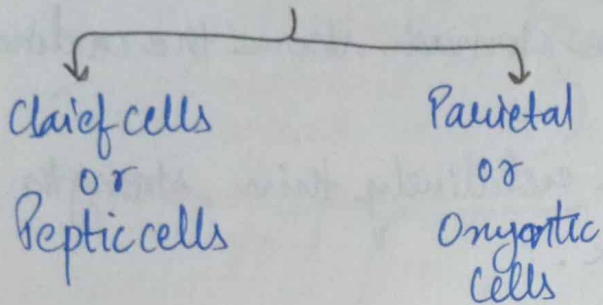 Chief cells
or
Peptic cells
Parietal
or
Oxyntic
Cells